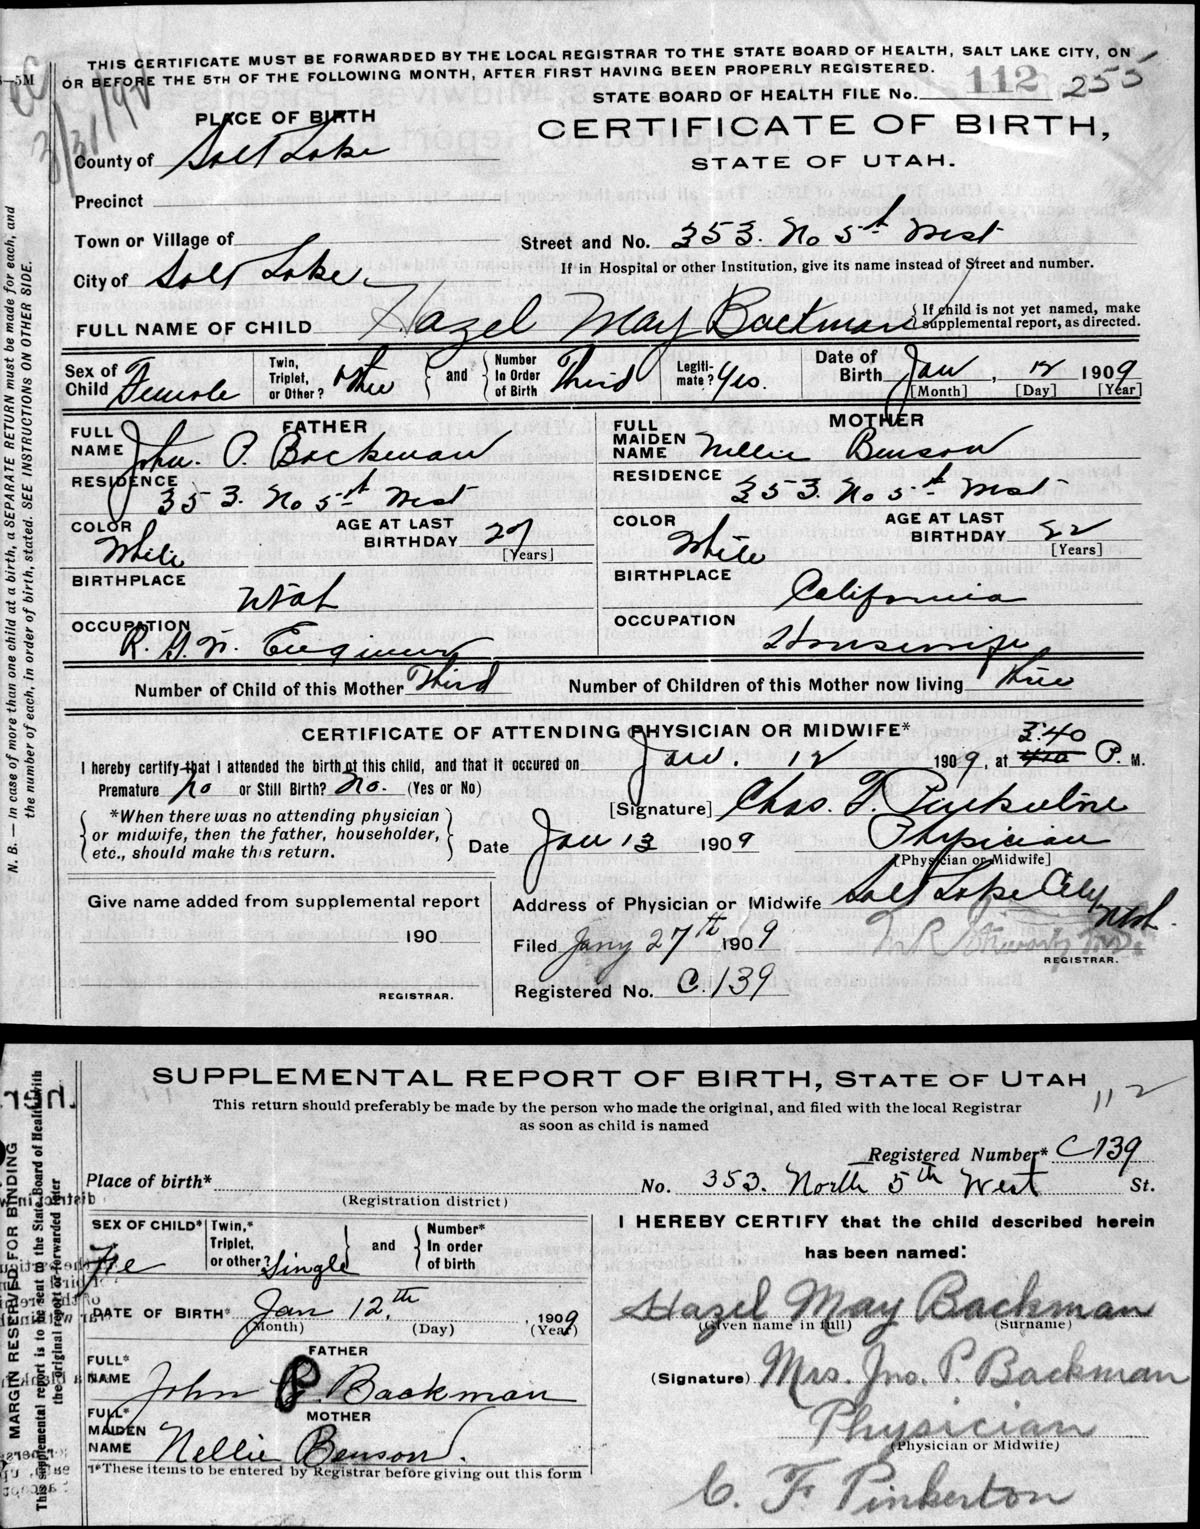 THIS CERTIFICATE MUST BE FORWARDED BY THE LOCAL REGISTRAR TO THE STATE BOARD OF HEALTH, SALT LAKE CITY, ON
OR BEFORE THE 5TH OF THE FOLLOWING MONTH, AFTER FIRST HAVING BEEN PROPERLY REGISTERED.
STATE BOARD OF HEALTH FILE No. 112 255
—5M
PLACE OF BIRTH
CERTIFICATE OF BIRTH,
STATE OF UTAH.
County of Salt Lake
Precinct
Town or Village of
Street and No. 353. No 5th West
City of Salt Lake
If in Hospital or other Institution, give its name instead of Street and number.
FULL NAME OF CHILD Hazel May Backman { If child is not yet named, make supplemental report, as directed.
Sex of Child Female Twin, Triplet, or Other? } and { Number In Order of Birth Third Legiti-mate? Yes. Date of Birth Jan, 12 1909
[Month] [Day] [Year]
FATHER
FULL NAME John. P. Backman
RESIDENCE 353. No 5th West
COLOR White AGE AT LAST BIRTHDAY 27 [Years]
BIRTHPLACE Utah
OCCUPATION R. G. W. Engineer
MOTHER
FULL MAIDEN NAME Nellie Benson
RESIDENCE 353. No 5th West
COLOR White AGE AT LAST BIRTHDAY 22 [Years]
BIRTHPLACE California
OCCUPATION Housewife
Number of Child of this Mother Third Number of Children of this Mother now living three
CERTIFICATE OF ATTENDING PHYSICIAN OR MIDWIFE*
I hereby certify that I attended the birth of this child, and that it occured on Jan. 12 1909, at 3:40 P. M.
Premature No or Still Birth? No. (Yes or No)
[Signature] Chas. F. Pinkerton
{ *When there was no attending physician or midwife, then the father, householder, etc., should make this return. }
Date Jan 13 1909 Physician
[Physician or Midwife]
Give name added from supplemental report
190
REGISTRAR.
Address of Physician or Midwife Salt Lake City Utah.
Filed Jany 27th 1909
REGISTRAR.
Registered No. C. 139
N. B. — In case of more than one child at a birth, a SEPARATE RETURN must be made for each, and
the number of each, in order of birth, stated. SEE INSTRUCTIONS ON OTHER SIDE.
SUPPLEMENTAL REPORT OF BIRTH, STATE OF UTAH
112
This return should preferably be made by the person who made the original, and filed with the local Registrar
as soon as child is named
Registered Number* C139
Place of birth* No. 353. North 5th West St.
(Registration district)
SEX OF CHILD* Fe Twin,* Triplet, or other? Single } and { Number* In order of birth
DATE OF BIRTH* Jan 12th, 1909
(Month) (Day) (Year)
FATHER
FULL* NAME John P. Backman
MOTHER
FULL* MAIDEN NAME Nellie Benson.
*These items to be entered by Registrar before giving out this form
I HEREBY CERTIFY that the child described herein
has been named:
Hazel May Backman
(Given name in full) (Surname)
(Signature) Mrs. Jno. P. Backman
Physician
(Physician or Midwife)
C. F. Pinkerton
MARGIN RESERVED FOR BINDING
This supplemental report is to be sent to the State Board of Health with
the original report or forwarded later